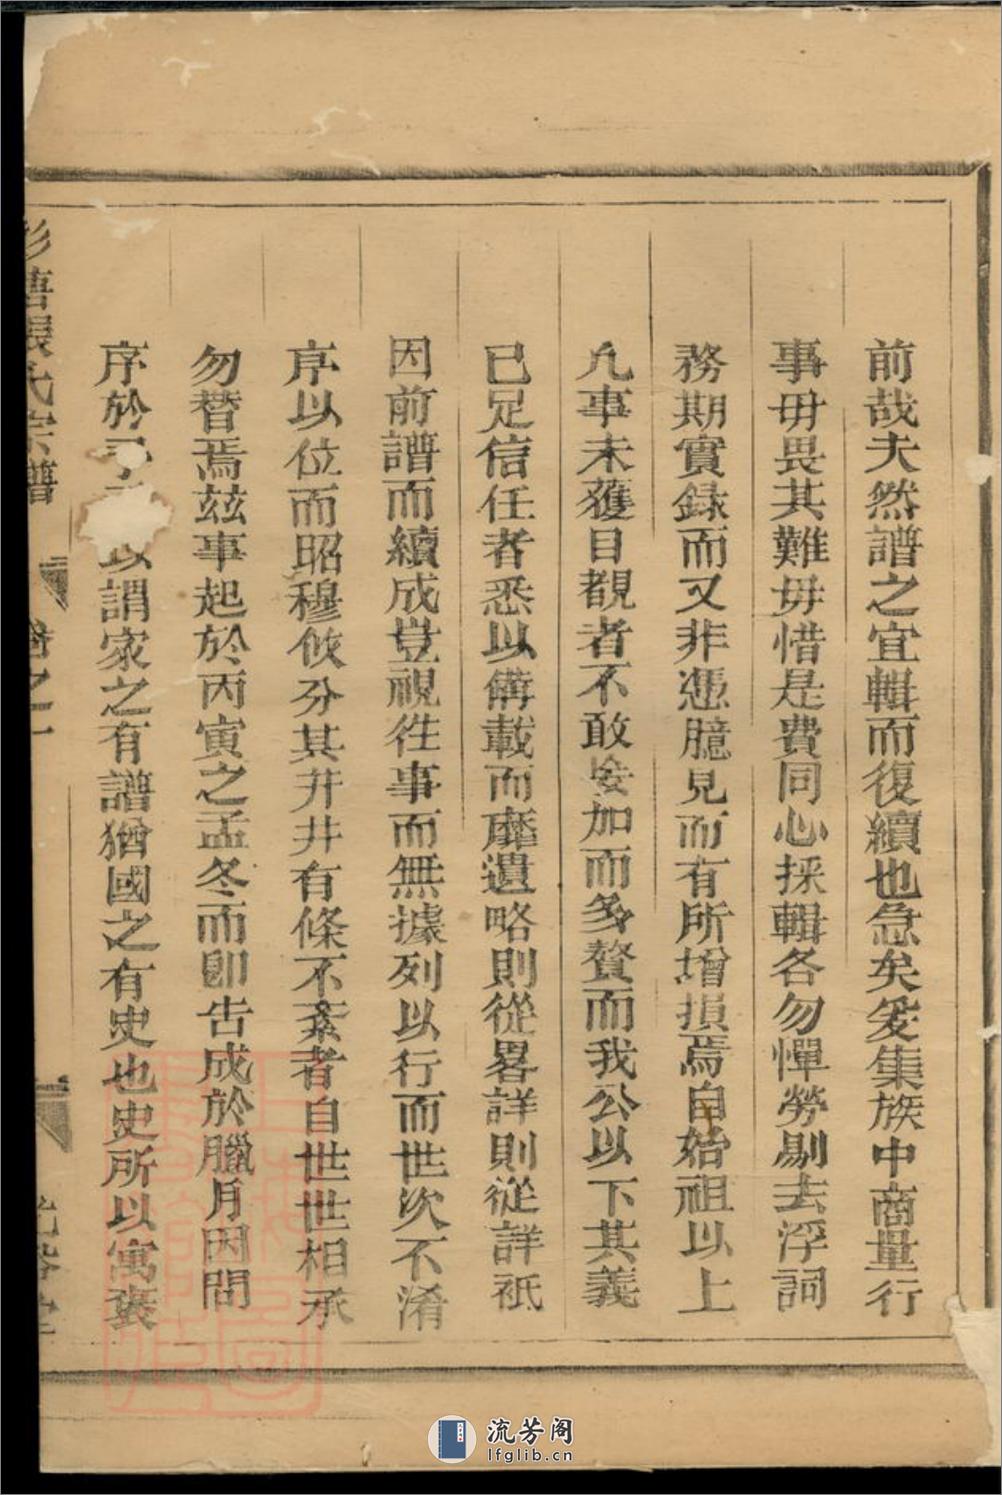 前哉夫然譜之宜輯而復續也急矣爰集族中商量行
事毋畏其難毋惜是費同心採輯各勿憚勞剔去浮詞
務期實録而又非憑臆見而有所增損焉自始祖以上
凢事未獲目覩者不敢妄加而多贅而我公以下其義
已足信任者悉以備載而靡遺略則從畧詳則從詳祗
因前譜而續成豈視徃事而無據列以行而世次不淆
序以位而昭穆攸分其井井有條不紊者自世世相承
勿替焉茲事起於丙寅之孟冬而卽告成於臘月因問
序於 以謂家之有譜猶國之有史也史所以寓褒
張氏宗譜 卷之一
流芳阁
lfglib.cn